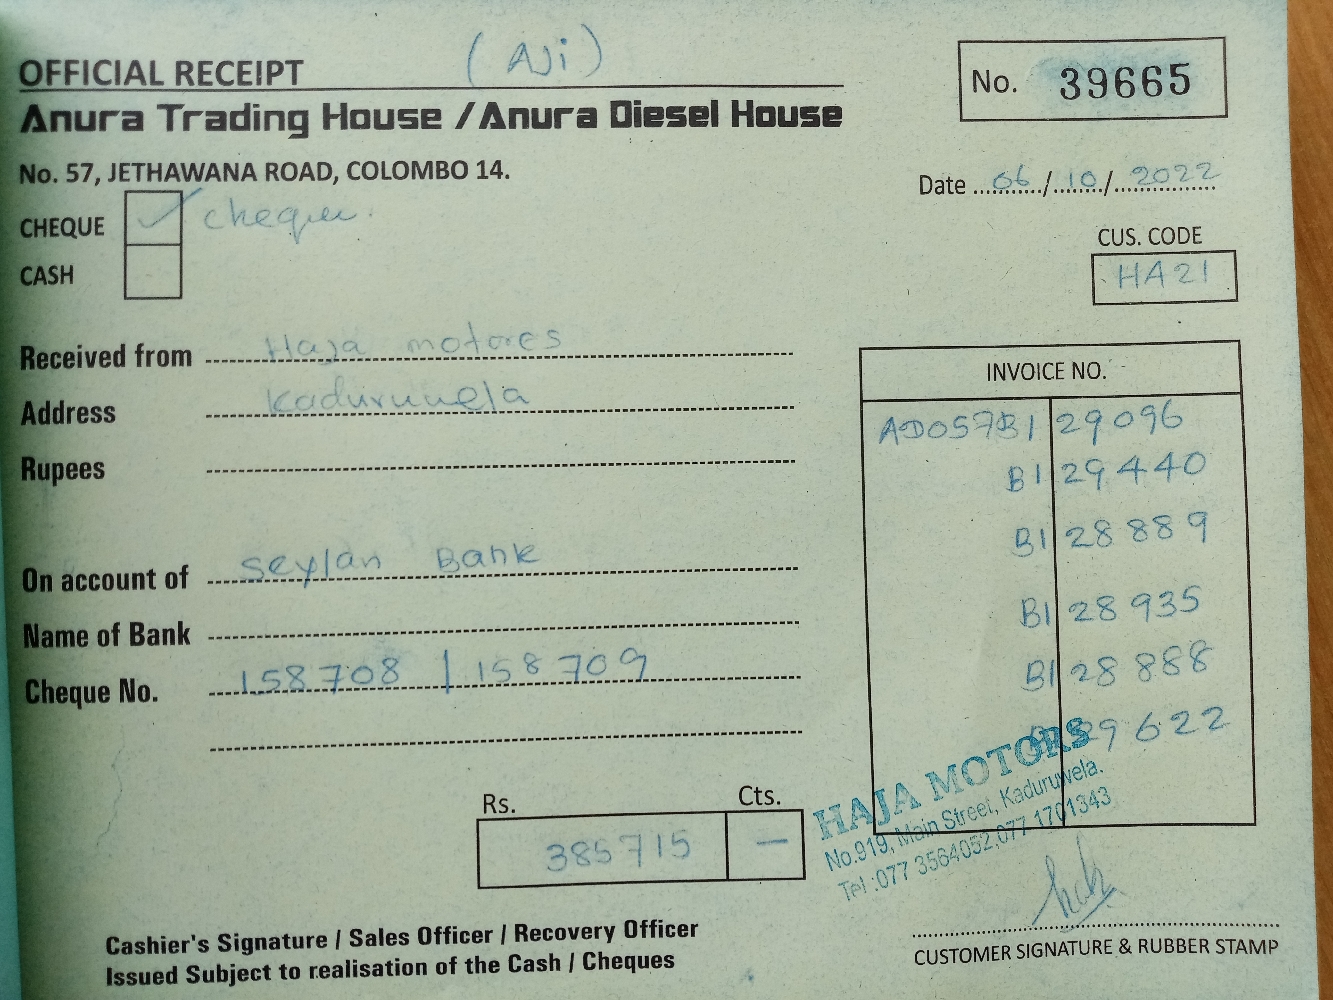 OFFICIAL RECEIPT (AJi)
No. 39665
Anura Trading House / Anura Diesel House
No. 57, JETHAWANA ROAD, COLOMBO 14.
Date 06/10/2022
CHEQUE ✓ cheque.
CASH
CUS. CODE
HA21
Received from Haja motores
Address Kaduruwela
Rupees
On account of Seylan Bank
Name of Bank
Cheque No. 158708 / 158709
INVOICE NO.
AD057B1 29096
B1 29440
B1 28889
B1 28935
B1 28888
29622
Rs. Cts.
385715 —
HAJA MOTORS
No.919, Main Street, Kaduruwela.
Tel :077 3564052,077 1701343
Cashier's Signature / Sales Officer / Recovery Officer
Issued Subject to realisation of the Cash / Cheques
CUSTOMER SIGNATURE & RUBBER STAMP